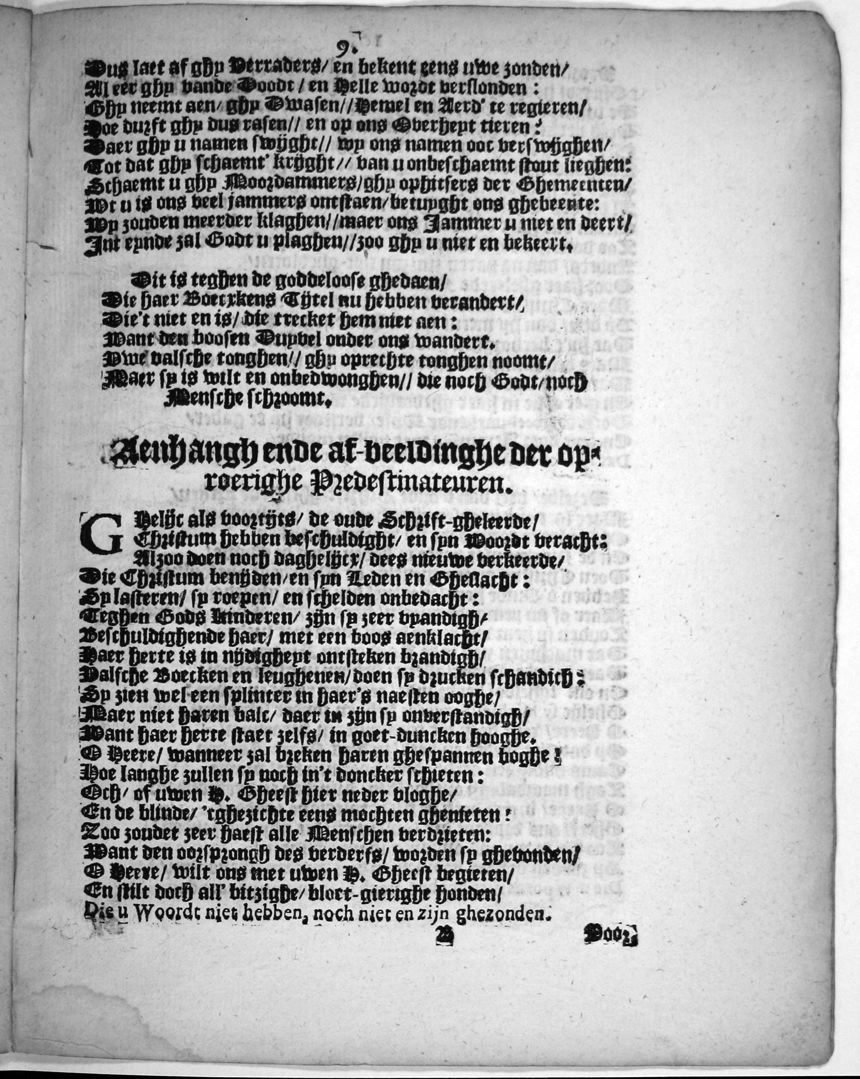 9.
Dus laet af ghy Verraders/ en bekent eens uwe zonden/
Al eer ghy vande Doodt / en Helle wordt verslonden :
Ghy neemt aen/ ghy Dwasen// Hemel en Aerd' te regieren/
Hoe durft ghy dus rasen// en op ons Overheyt tieren ?
Daer ghy u namen swijght// wy ons namen ooc verswijghen/
Tot dat ghy schaemt' krijght// van u onbeschaemt stout lieghen:
Schaemt u ghy Moordammers/ghy ophitsers der Ghemeenten/
Wt u is ons veel jammers ontstaen/betuyght ons ghebeente:
Wy zouden meerder klaghen//maer ons Jammer u niet en deert/
Int eynde zal Godt u plaghen//zoo ghy u niet en bekeert.
Dit is teghen de goddeloose ghedaen/
Die haer Boecxkens Tijtel nu hebben verandert/
Die't niet en is/ die trecket hem niet aen :
Want den boosen Duyvel onder ons wandert.
Uwe valsche tonghen// ghy oprechte tonghen noomt/
Maer sy is wilt en onbedwonghen// die noch Godt/noch
Mensche schroomt.
Aenhangh ende af-beeldinghe der op-
roerighe Predestinateuren.
GHelijc als voortijts/ de oude Schrift-gheleerde/
Christum hebben beschuldight/ en syn Woordt veracht:
Alzoo doen noch daghelijcx/ dees nieuwe verkeerde/
Die Christum benijden/en syn Leden en Gheslacht :
Sy lasteren/ sy roepen/ en schelden onbedacht :
Teghen Gods kinderen/ zijn sy zeer vyandigh/
Beschuldighende haer/ met een boos aenklacht/
Haer herte is in nijdigheyt ontsteken brandigh/
Valsche Boecken en leughenen/ doen sy drucken schandich:
Sy zien wel een splinter in haer's naesten ooghe/
Maer niet haren balc/ daer in zijn sy onverstandigh/
Want haer herte staet zelfs/ in goet-duncken hooghe.
O Heere/ wanneer zal breken haren ghespannen boghe ?
Hoe langhe zullen sy noch in't doncker schieten :
Och/ of uwen H. Gheest hier neder vloghe/
En de blinde/ 'rghezichte eens mochten ghenieten :
Zoo zoudet zeer haest alle Menschen verdrieten:
Want den oorsprongh des verderfs/ worden sy ghevonden/
O Heere/ wilt ons met uwen H. Gheest begieten/
En stilt doch all' bitzighe/ bloet-gierighe honden/
Die u Woordt niet hebben, noch niet en zijn ghezonden.
B Door